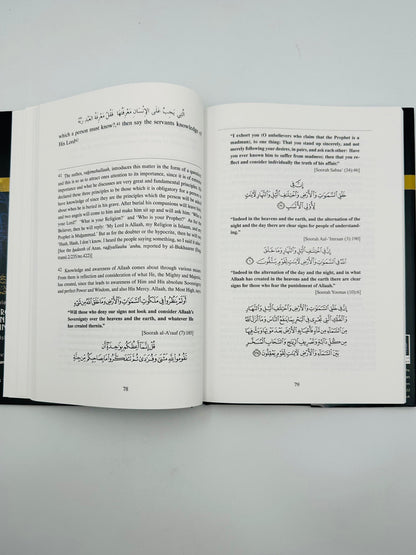 الَّتِي يَجِبُ عَلَى الْإِنْسَانِ مَعْرِفَتُهَا فَقُلْ مَعْرِفَةُ الْعَبْدِ رَبَّهُ
which a person must know?,41 then say the servants knowledge of
His Lord42
41 The author, rahimahullaah, introduces this matter in the form of a question
and this is so as to attract ones attention to its importance, since it is of extreme
importance and what he discusses are very great and fundamental principles. He
declared these principles to be those which it is obligatory for a person
have knowledge of since they are the principles which the person will be ask
about when he is buried in his grave. After burial his companions turn
and two angels will come to him and make him sit up and will ask him "Who is
your Lord?" "What is your Religion?" and "Who is your Prophet?" As for the
Believer, then he will reply: 'My Lord is Allaah, my Religion is Islaam, and my
Prophet is Muhammad.' But as for the doubter or the hypocrite, then he will
'Haah, Haah, I don't know. I heard the people saying something, so I said it also.'
42 Knowledge and awareness of Allaah comes about through various means
From them is that one looks and considers and reflects upon what Allaah
has created, since that leads to awareness of Him and His absolute Sovereignty
and perfect Power and Wisdom, and also His Mercy. Allaah, the Most High, says:
أَوَلَمْ يَنظُرُوا۟ فِى مَلَكُوتِ ٱلسَّمَٰوَٰتِ وَٱلْأَرْضِ وَمَا خَلَقَ ٱللَّهُ مِن شَىْءٍ
"Will those who deny our signs not look and consider Allaah's
Sovereignty over the heavens and the earth, and whatever He
has created therein."
[Soorah al-A'raaf (7):185]
قُلْ إِنَّمَآ أَعِظُكُم بِوَٰحِدَةٍ أَن
تَقُومُوا۟ لِلَّهِ مَثْنَىٰ وَفُرَٰدَىٰ ثُمَّ تَتَفَكَّرُوا۟ مَا بِصَاحِبِكُم مِّن جِنَّةٍ
78
"I exhort you (O unbelievers who claim that the Prophet is a
madman), to one thing: That you stand up sincerely, and not
merely following your desires, in pairs, and ask each other: Have
you ever known him to suffer from madness; then that you re-
flect and consider individually the truth of his affair."
[Soorah Sabaa' (34):46]
إِنَّ فِى
خَلْقِ ٱلسَّمَٰوَٰتِ وَٱلْأَرْضِ وَٱخْتِلَٰفِ ٱلَّيْلِ وَٱلنَّهَارِ لَءَايَٰتٍ
لِّأُو۟لِى ٱلْأَلْبَٰبِ
"Indeed in the heavens and the earth, and the alternation of
the night and the day there are clear signs for people of understand-
ing."
[Soorah Aal-'Imraan (3):190]
إِنَّ فِى ٱخْتِلَٰفِ ٱلَّيْلِ وَٱلنَّهَارِ وَمَا خَلَقَ ٱللَّهُ
فِى ٱلسَّمَٰوَٰتِ وَٱلْأَرْضِ لَءَايَٰتٍ لِّقَوْمٍ يَتَّقُونَ
"Indeed in the alternation of the day and the night, and in what
Allaah has created in the heavens and the earth, there are clear
signs for those who fear the punishment of Allaah."
[Soorah Yoonus (10):6]
إِنَّ فِى خَلْقِ ٱلسَّمَٰوَٰتِ وَٱلْأَرْضِ وَٱخْتِلَٰفِ ٱلَّيْلِ وَٱلنَّهَارِ
وَٱلْفُلْكِ ٱلَّتِى تَجْرِى فِى ٱلْبَحْرِ بِمَا يَنفَعُ ٱلنَّاسَ وَمَآ أَنزَلَ ٱللَّهُ
مِنَ ٱلسَّمَآءِ مِن مَّآءٍ فَأَحْيَا بِهِ ٱلْأَرْضَ بَعْدَ مَوْتِهَا وَبَثَّ فِيهَا
مِن كُلِّ دَآبَّةٍ وَتَصْرِيفِ ٱلرِّيَٰحِ وَٱلسَّحَابِ ٱلْمُسَخَّرِ
بَيْنَ ٱلسَّمَآءِ وَٱلْأَرْضِ لَءَايَٰتٍ لِّقَوْمٍ يَعْقِلُونَ
79